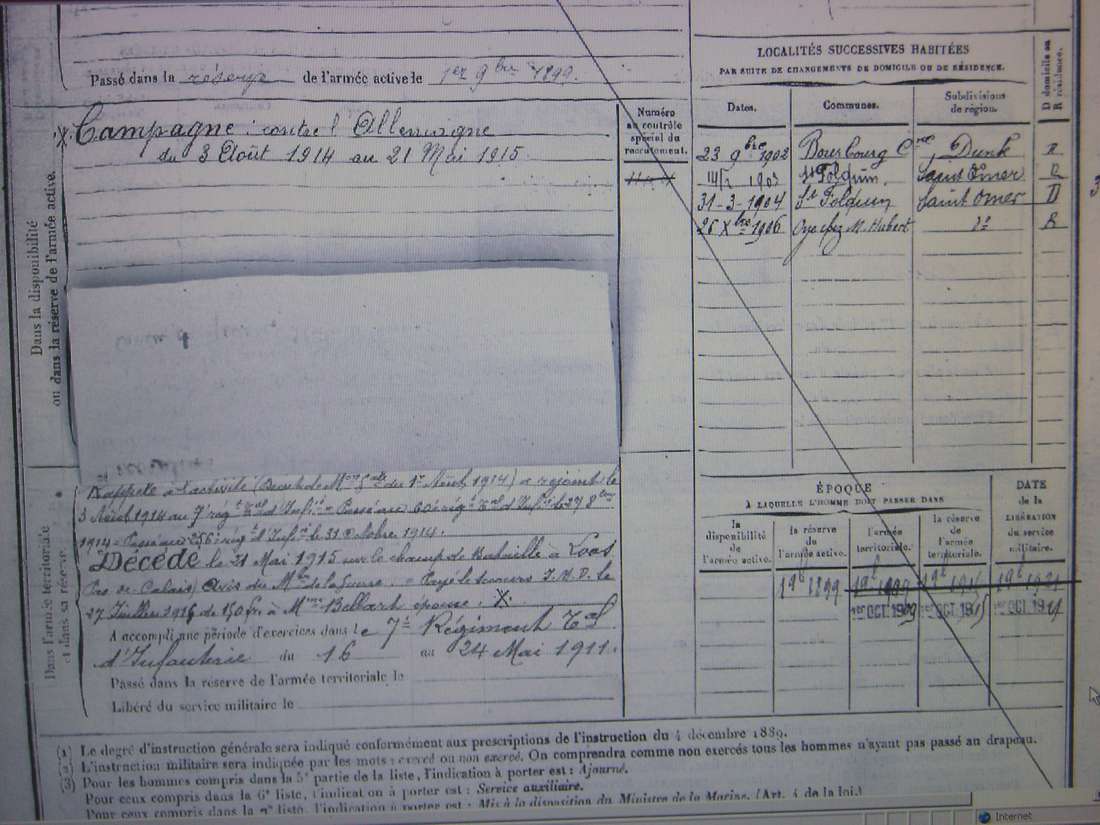 Passé dans la réserve de l'armée active le 1er 9bre 1899.
Campagne : contre l'Allemagne
du 3 Août 1914 au 21 Mai 1915.
Dans la disponibilité
ou dans la réserve de l'armée active.
Numéro
au contrôle
spécial du
recrutement.
LOCALITÉS SUCCESSIVES HABITÉES
PAR SUITE DE CHANGEMENTS DE DOMICILE OU DE RÉSIDENCE.
Dates. Communes. Subdivisions de région. D domicile ou R résidence.
23 9bre 1902 Bourbourg Cne Dunk R
1903 St Folquin. Saint Omer R
31-3-1904 St Folquin Saint Omer D
26 Xbre 1906 Oye chez M. Hubert do R
Rappelé à l'activité (Décret de Mon Gale du 1er Août 1914) a rejoint le
3 Août 1914 au 7e rég t Tal d'Infie = Passé au 6 rég t Tal d'Infie le 27 8bre
1914 = Passé au 256 rég t d'Infie le 31 Octobre 1914.
Décédé le 21 Mai 1915 sur le champ de Bataille à Loos
Pas de Calais) Avis du Mtre de la Guerre. = Payé le secours I.M.D. le
27 Juillet 1916 de 150 fr. à Mme Ballart épouse. X.
Dans l'armée territoriale
et dans sa réserve.
A accompli une période d'exercices dans le 7e Régiment Tal
d'Infanterie du 16 au 24 Mai 1911.
Passé dans la réserve de l'armée territoriale le
Libéré du service militaire le
ÉPOQUE
À LAQUELLE L'HOMME DOIT PASSER DANS
la disponibilité de l'armée active. la réserve de l'armée active. l'armée territoriale. la réserve de l'armée territoriale. DATE de la LIBÉRATION du service militaire.
1899
1er OCT. 19 OCT. 1915 OCT. 19
(1) Le degré d'instruction générale sera indiqué conformément aux prescriptions de l'instruction du 4 décembre 1889.
(2) L'instruction militaire sera indiquée par les mots : exercé ou non exercé. On comprendra comme non exercés tous les hommes n'ayant pas passé au drapeau.
(3) Pour les hommes compris dans la 5e partie de la liste, l'indication à porter est : Ajourné.
Pour ceux compris dans la 6e liste, l'indication à porter est : Service auxiliaire.
Pour ceux compris dans la 7e liste, l'indication à porter est : Mis à la disposition du Ministre de la Marine. (Art. 4 de la loi.)
Internet